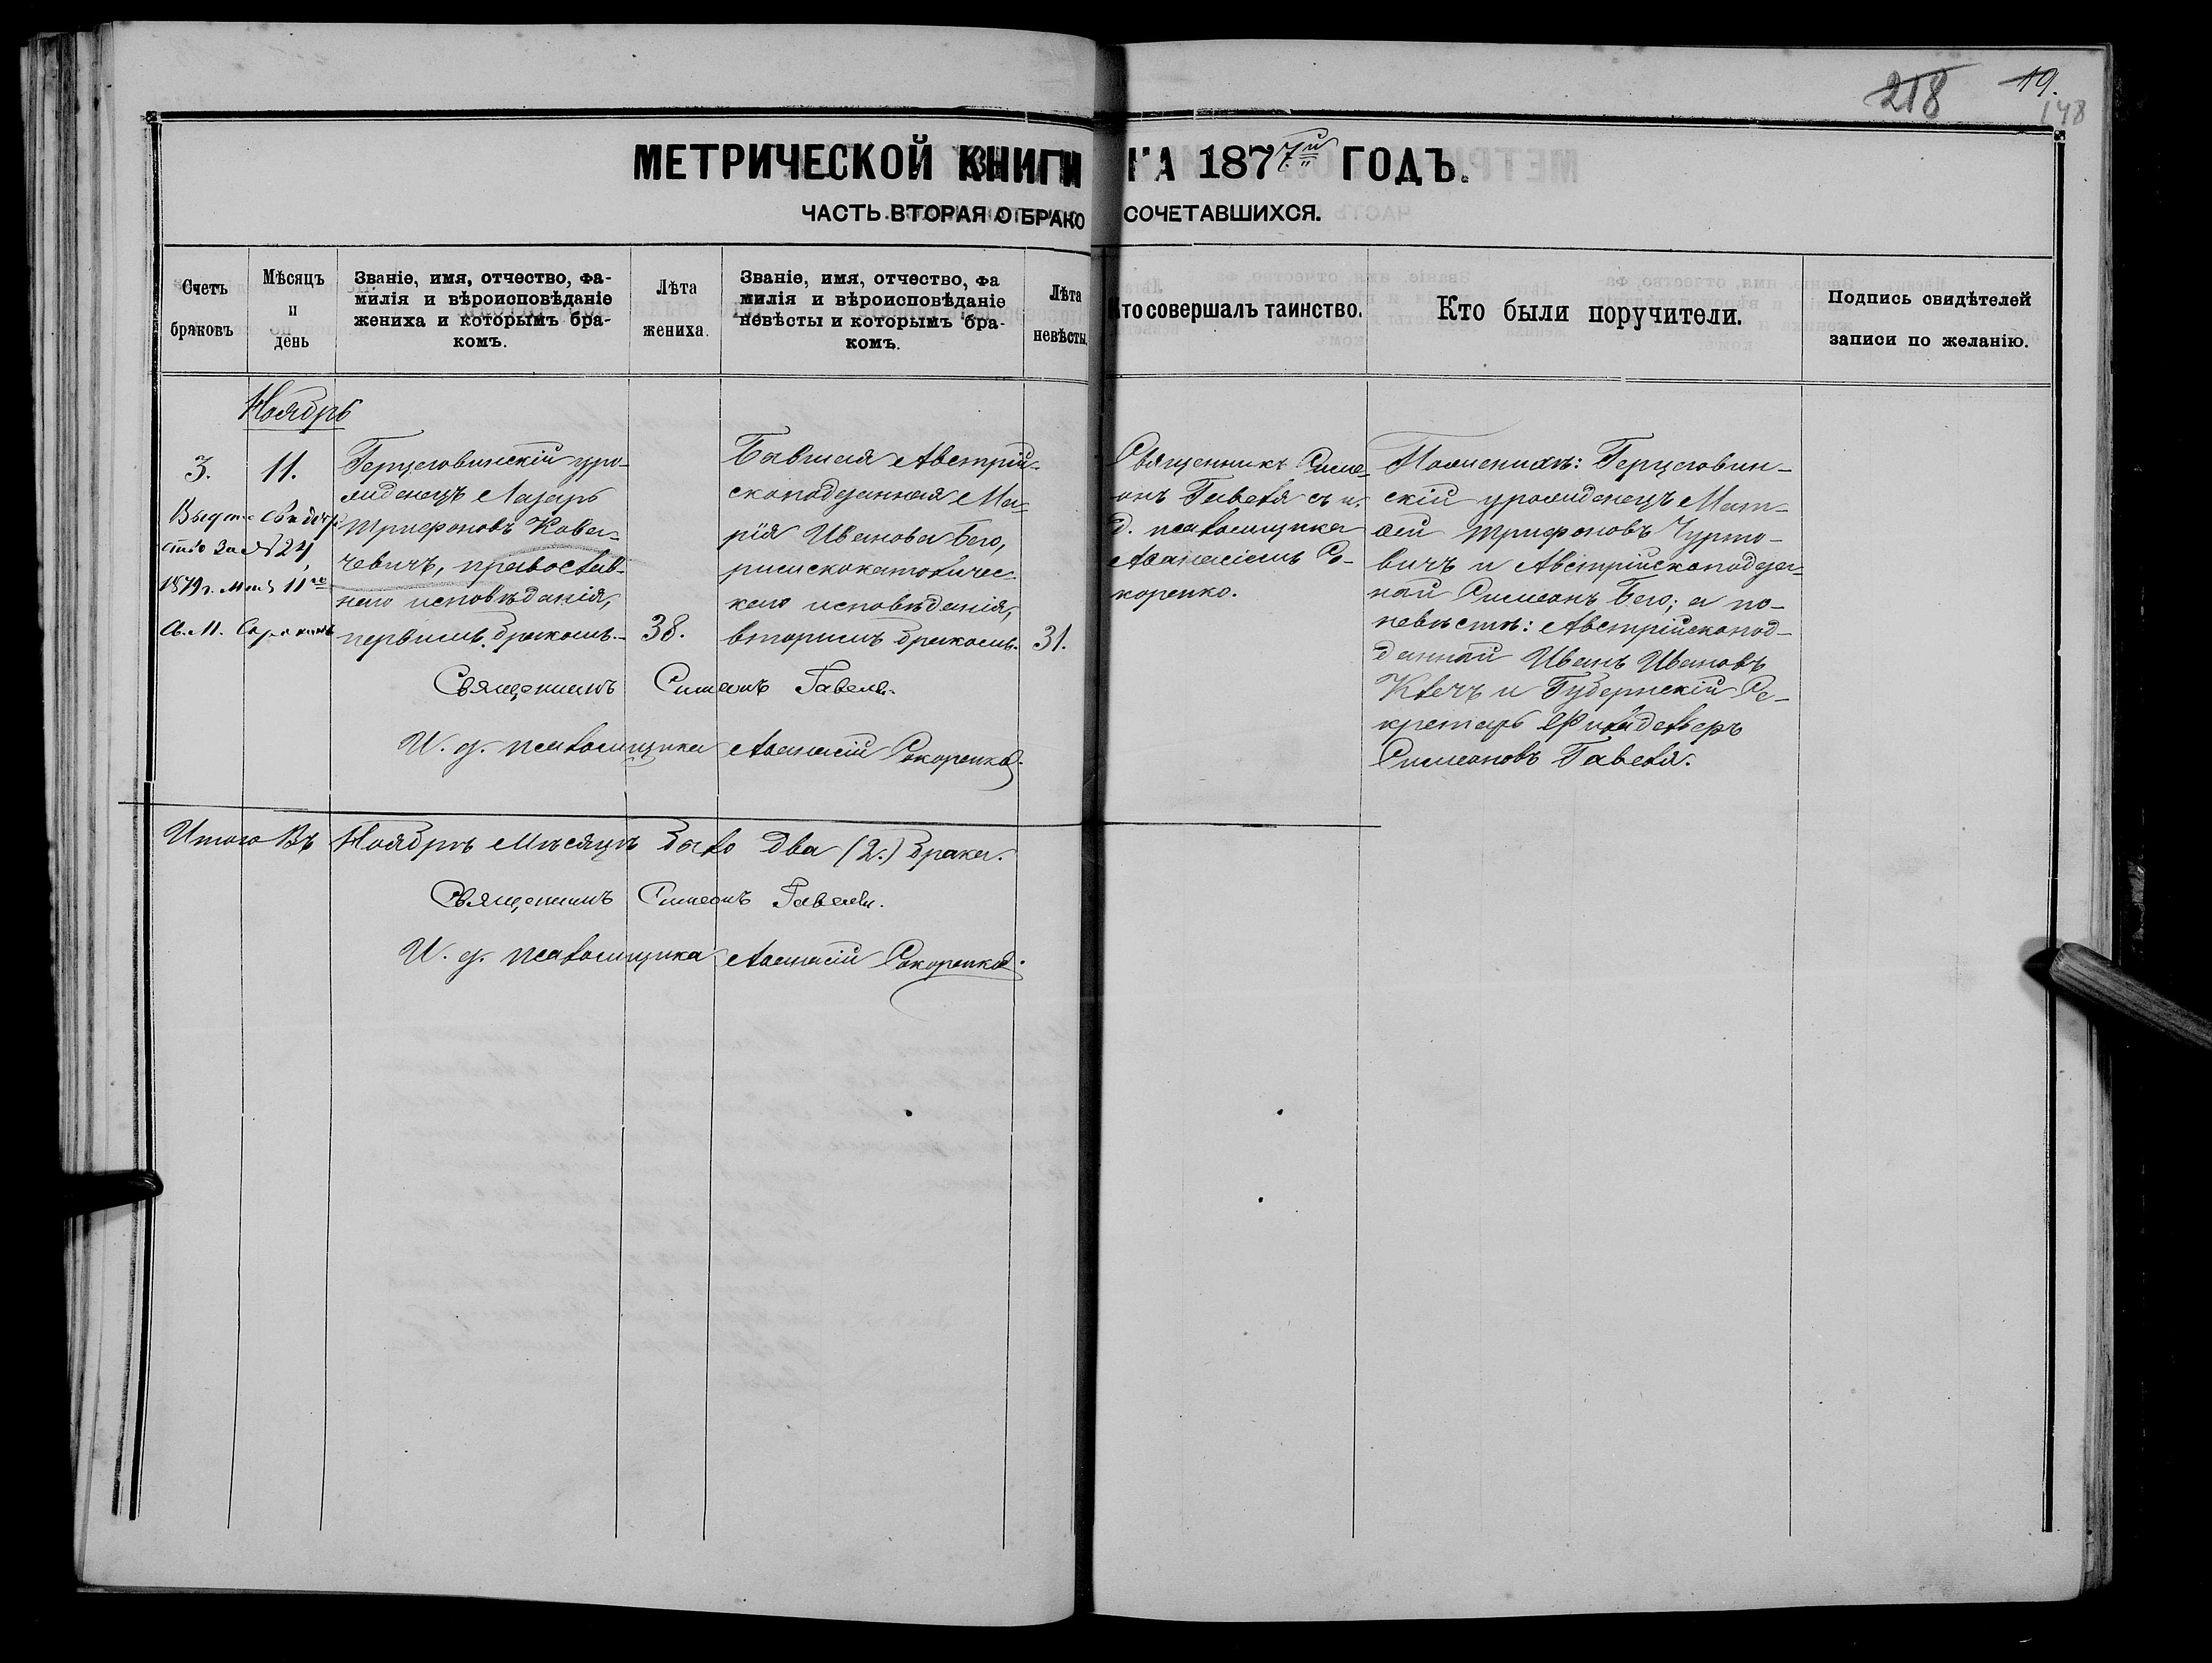 218 19.
148
МЕТРИЧЕСКОЙ КНИГИ НА 1877й ГОДЪ.
ЧАСТЬ ВТОРАЯ О БРАКОСОЧЕТАВШИХСЯ.
Счетъ браковъ
Мѣсяцъ и день
Званіе, имя, отчество, фа-
милія и вѣроисповѣданіе
жениха и которымъ бра-
комъ.
Лѣта жениха.
Званіе, имя, отчество, фа
милія и вѣроисповѣданіе
невѣсты и которымъ бра-
комъ.
Лѣта невѣсты.
Кто совершалъ таинство.
Кто были поручители.
Подпись свидѣтелей
записи по желанію.
Ноябрь
3.
11.
за № 24
1879 г. мая 11го
Герцеговинскій уро-
жденецъ Лазарь
Трифоновъ Кова-
чевичъ, православ-
наго исповѣданія,
первымъ бракомъ.
38.
Бывшая Австрій-
скоподданная Ма-
рія Иванова Бего,
римскокатоличес-
каго исповѣданія,
вторымъ бракомъ.
31.
Священникъ Симе-
онъ Гавеля съ и.
д. псаломщика
Аѳанасіемъ Со-
коренко.
По женихѣ: Герцеговин-
скій урожденецъ Мат-
ѳей Трифоновъ Чурто-
вичъ и Австрійскоподдан-
ный Симеонъ Бего; а по
невѣстѣ: Австрійскопод-
данный Иванъ Ивановъ
Клечъ и Губернскій Се-
кретарь Филадельфъ
Симеоновъ Гавеля.
Священникъ Симеонъ Гавеля.
И. д. псаломщика Аѳанасій Сокоренко.
Итого въ Ноябрѣ мѣсяцѣ было два (2.) брака.
Священникъ Симеонъ Гавеля.
И. д. псаломщика Аѳанасій Сокоренко.